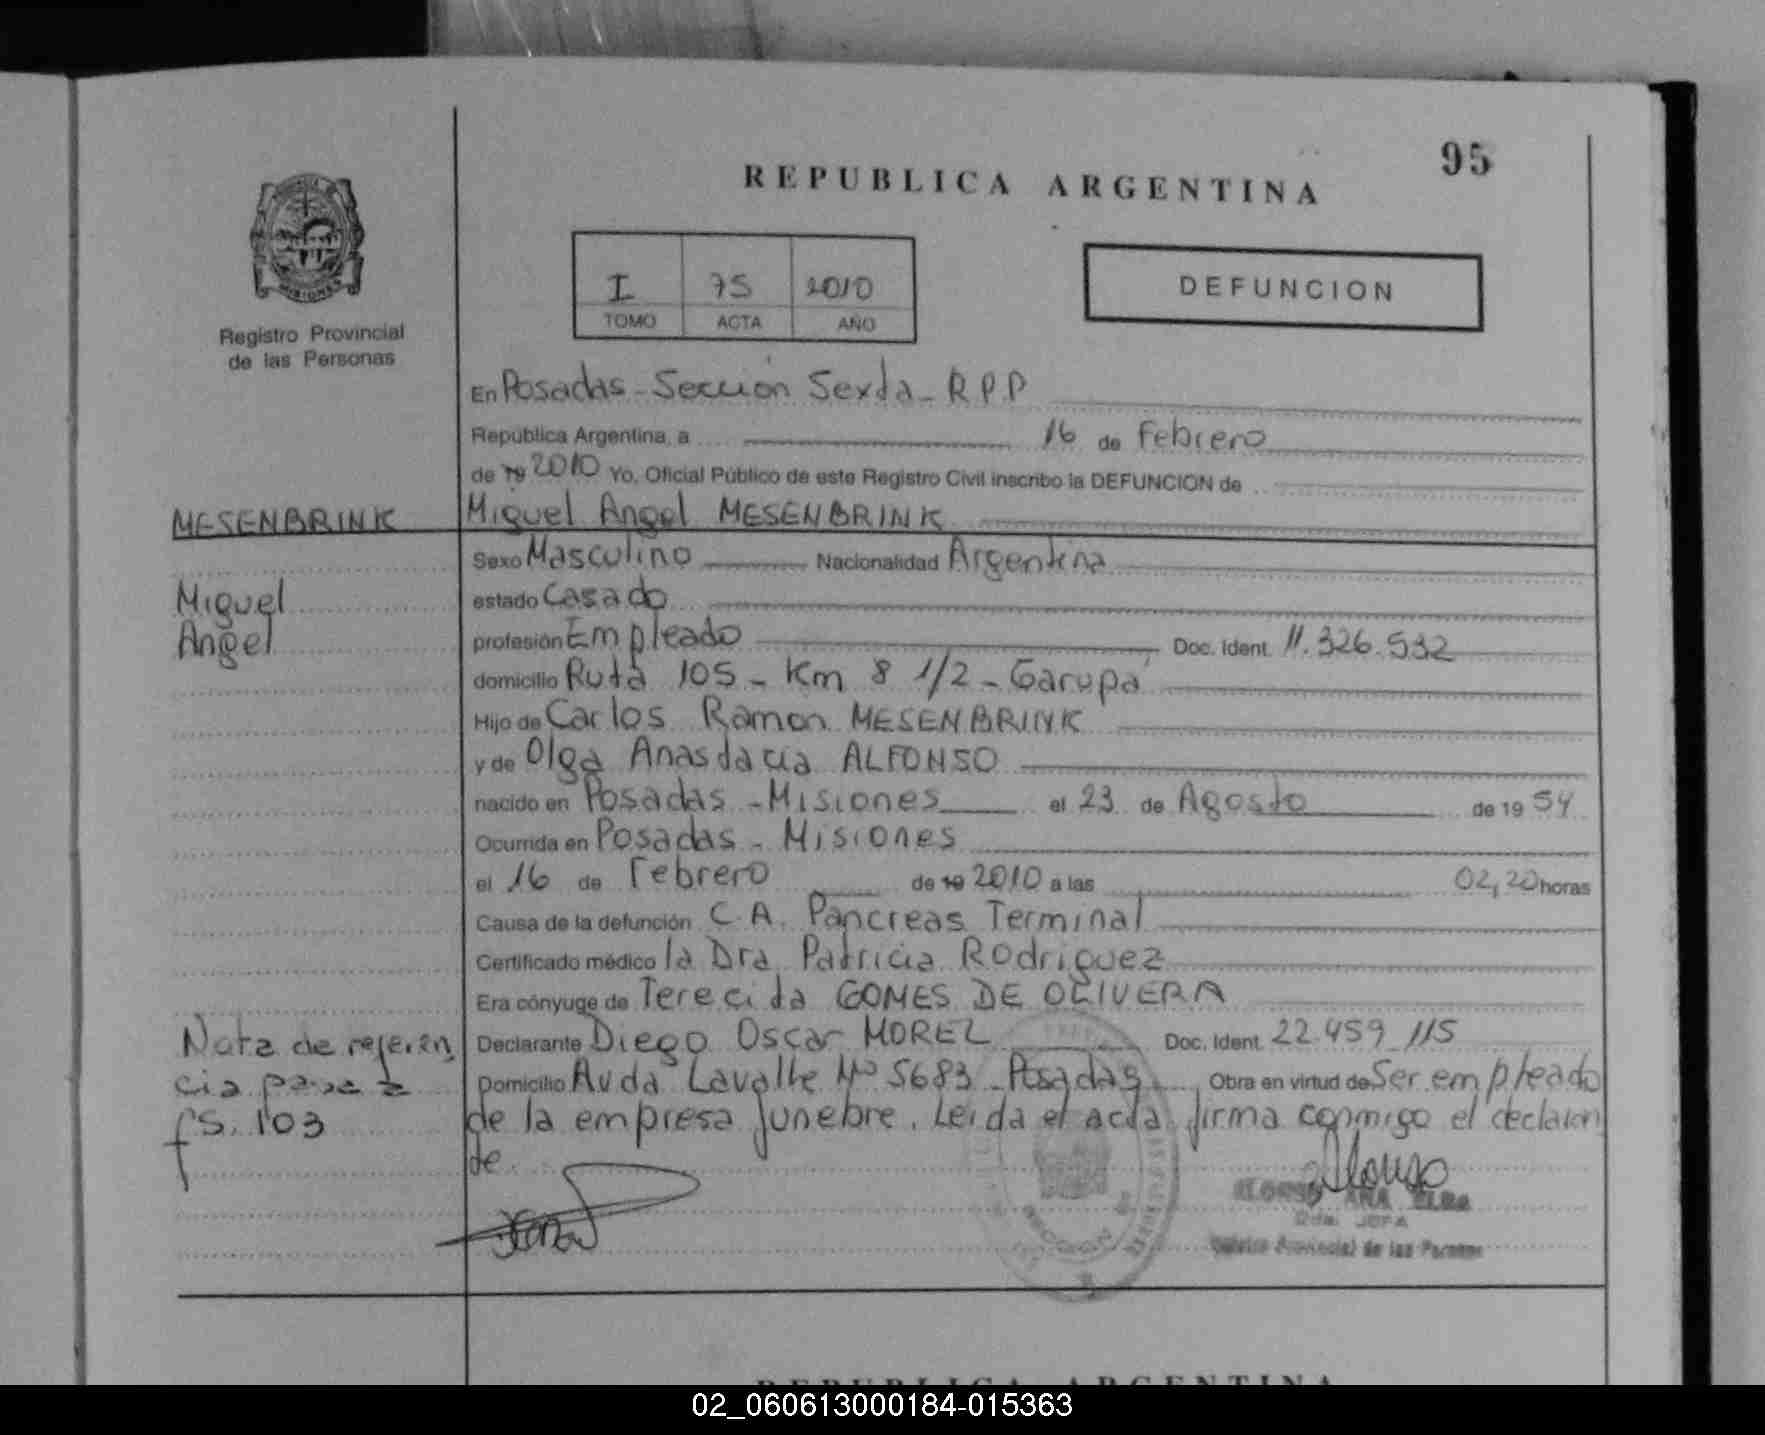 95
REPUBLICA ARGENTINA
MISIONES
Registro Provincial
de las Personas
I 75 2010
TOMO ACTA AÑO
DEFUNCION
En Posadas - Sección Sexta - R P P
República Argentina, a 16 de Febrero
de 19 2010 Yo, Oficial Público de este Registro Civil inscribo la DEFUNCION de
MESENBRINK
Miguel Angel
Miguel Angel MESENBRINK
Sexo Masculino Nacionalidad Argentina
estado Casado
profesión Empleado Doc. Ident. 11.326.532
domicilio Ruta 105 - Km 8 1/2 - Garupá
Hijo de Carlos Ramon MESENBRINK
y de Olga Anastacia ALFONSO
nacido en Posadas - Misiones el 23 de Agosto de 19 54
Ocurrida en Posadas - Misiones
el 16 de Febrero de 19 2010 a las 02,20 horas
Causa de la defunción C.A. Páncreas Terminal
Certificado médico la Dra Patricia Rodriguez
Era cónyuge de Terecita GOMES DE OLIVERA
Declarante Diego Oscar MOREL Doc. Ident. 22.459.115
Domicilio Avda Lavalle Nº 5683 - Posadas Obra en virtud de Ser empleado
de la empresa funebre. Leida el acta firma conmigo el declaran
te
Nota de referen
cia pasa a
fs. 103
Alonso
ALONSO ANA ELBA
JEFA
Provincial de las Personas
REPUBLICA ARGENTINA
02_060613000184-015363